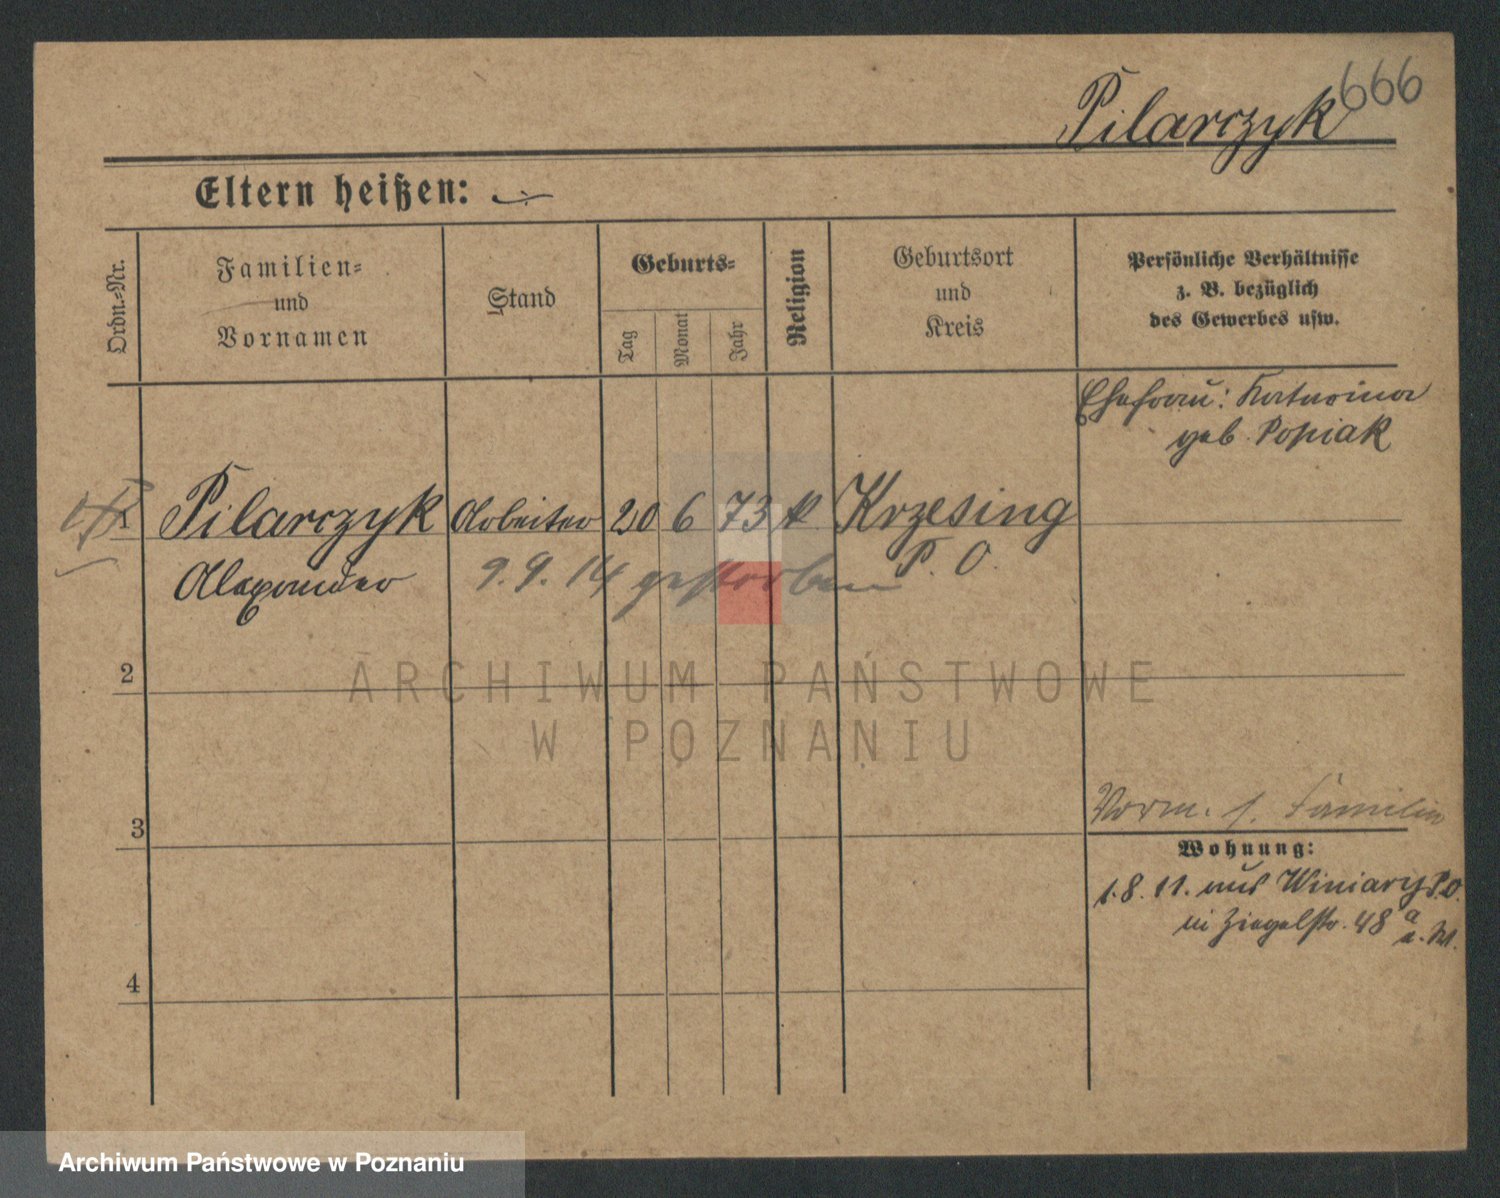 666
Pilarczyk
Eltern heißen:
Ordn.-Nr.
Familien-
und
Vornamen
Stand
Geburts-
Tag
Monat
Jahr
Religion
Geburtsort
und
Kreis
Persönliche Verhältnisse
z. B. bezüglich
des Gewerbes usw.
Ehefrau: Katarina
geb. Popiak
1 Pilarczyk Arbeiter 20 6 73 k Krzesing
Alexander P. O.
9. 9. 14 gestorben
2
3
4
Verm. s. Familie
Wohnung:
1. 8. 11. aus Winiary P.O.
in Ziegelstr. 48 a
ARCHIWUM PAŃSTWOWE
W POZNANIU
Archiwum Państwowe w Poznaniu